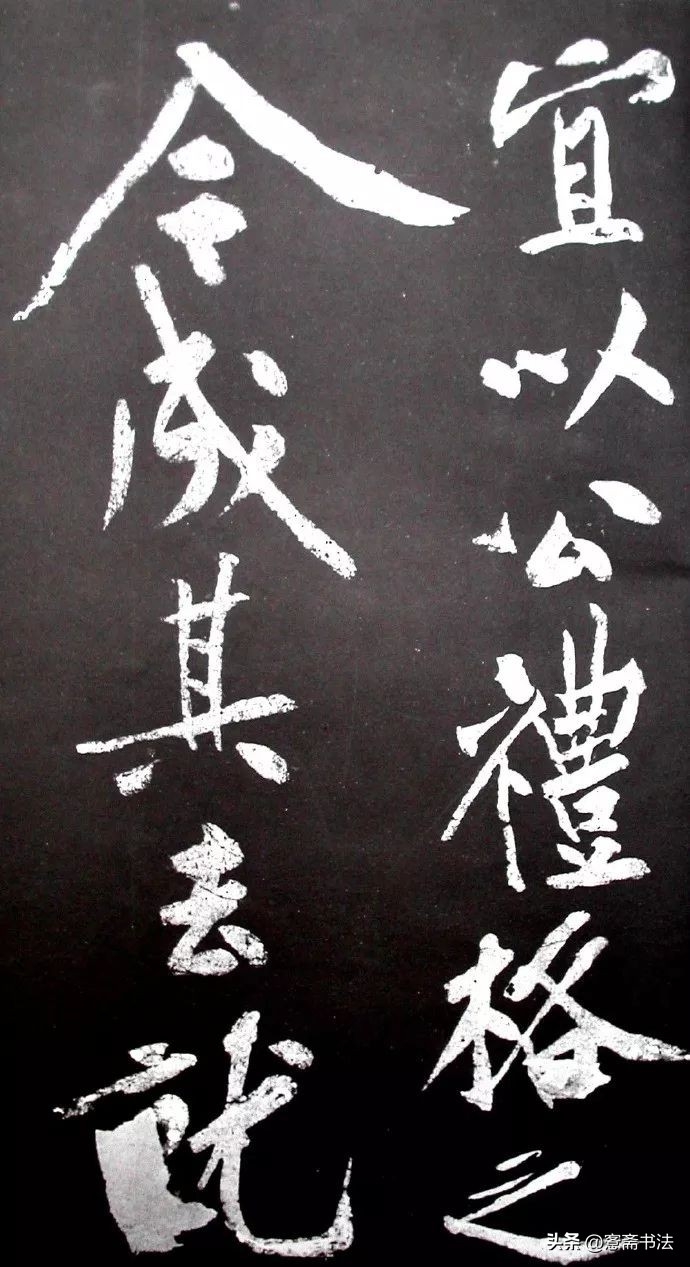 宜以公禮格之
令成其去就
头条 @愙斋书法